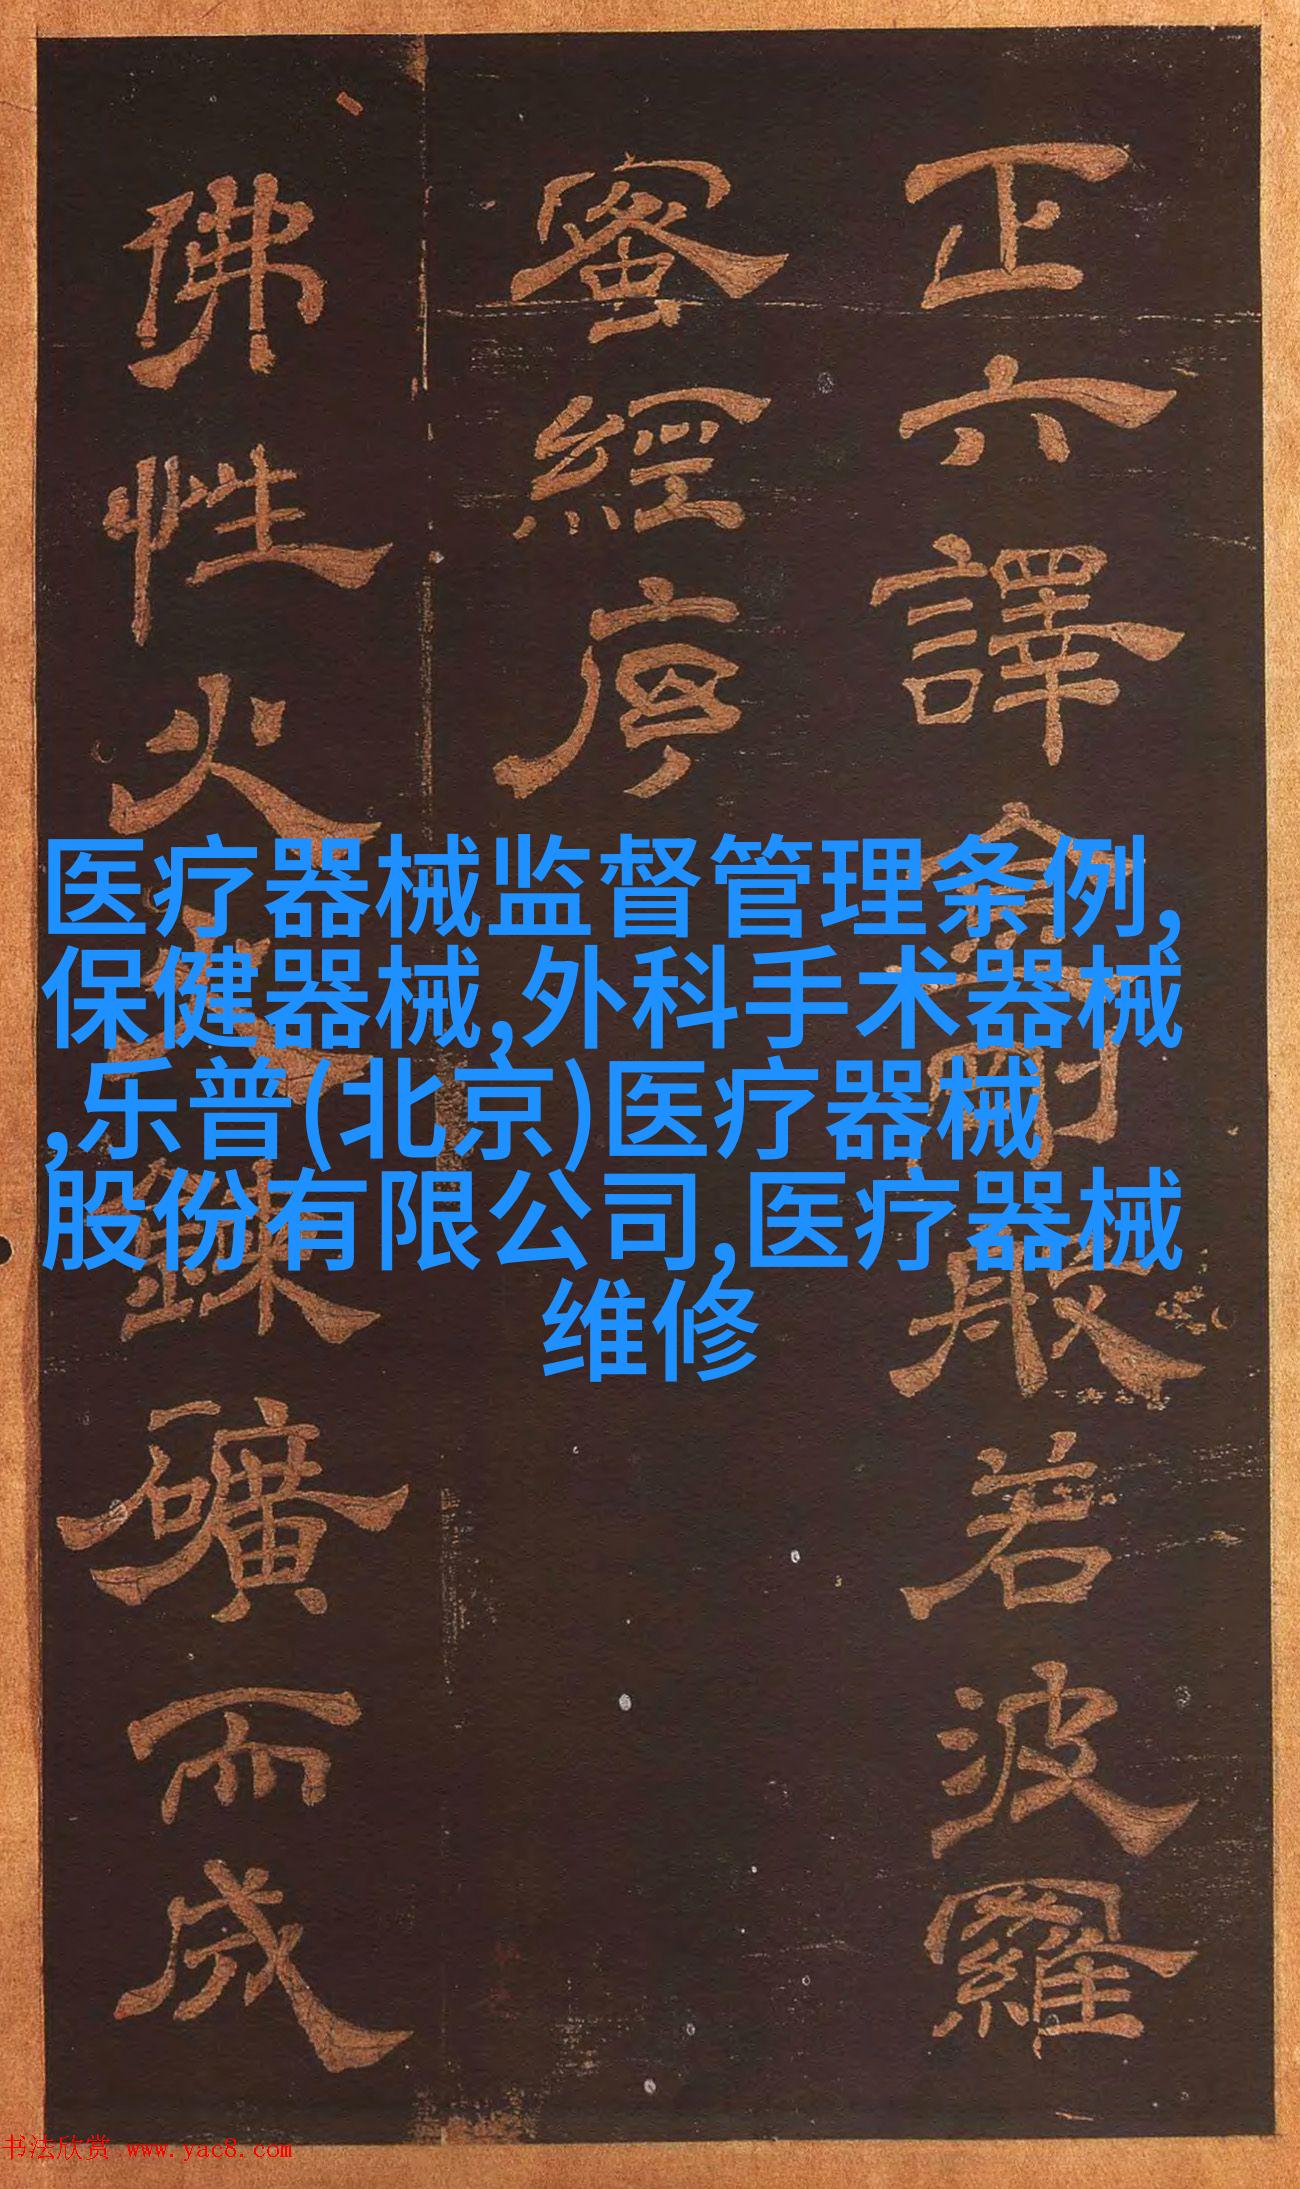 正六譯金剛般若波羅
蜜經序
佛性火鍊礦而成
医疗器械监督管理条例,
保健器械,外科手术器械
,乐普(北京)医疗器械
股份有限公司,医疗器械
维修
书法欣赏 www.yac8.com